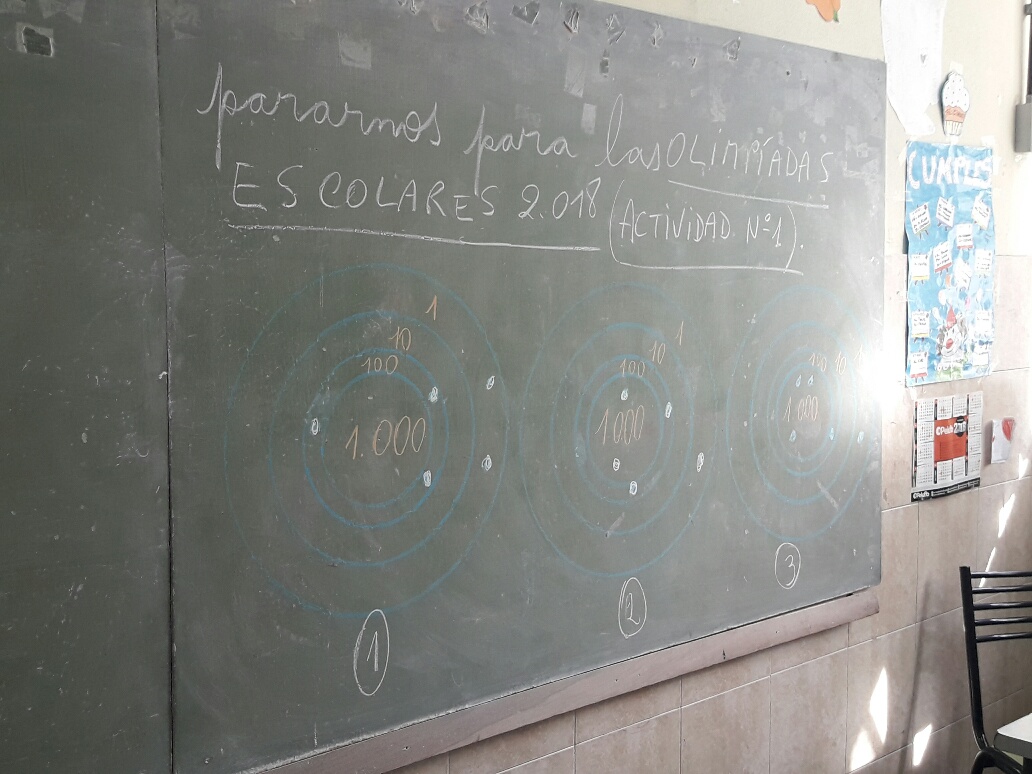 pararnos para las OLIMPÍADAS
ESCOLARES 2.018 (ACTIVIDAD Nº1).
1
10
100
1.000
1
10
100
1000
1
10
100
1.000
1
2
3
CUMPLES